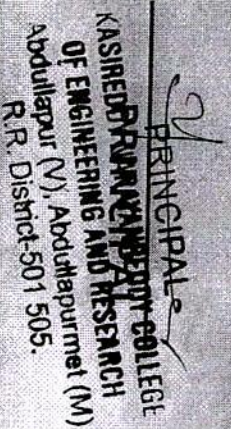 PRINCIPAL
KASIREDDY NARAYANREDDY COLLEGE
OF ENGINEERING AND RESEARCH
Abdullapur (V), Abdullapurmet (M)
R.R. District-501 505.